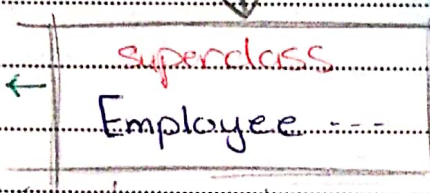 superclass
Employee ---